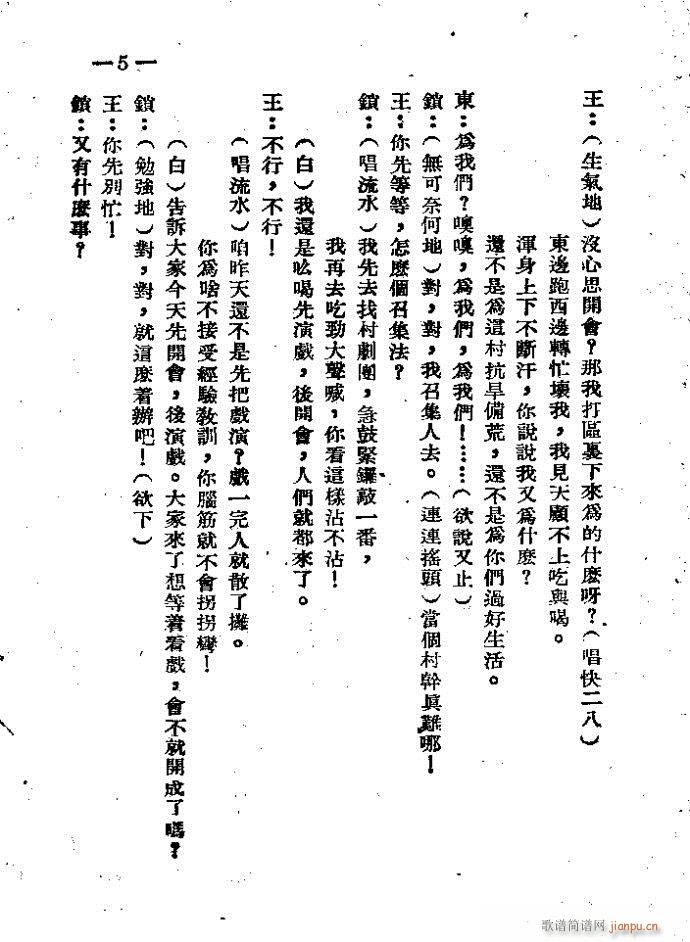 —5—
王：（生氣地）沒心思開會？那我打區裏下來爲的什麽呀？（唱快二八）
東邊跑西邊轉忙壞我，我見天顧不上吃與喝。
渾身上下不斷汗，你說說我又爲什麽？
還不是爲這村抗旱備荒，還不是爲你們過好生活。
東：爲我們？噢噢，爲我們，爲我們！……（欲說又止）
鎖：（無可奈何地）對，對，我召集人去。（連連搖頭）當個村幹眞難哪！
王：你先等等，怎麽個召集法？
鎖：（唱流水）我先去找村劇團，急鼓緊鑼敲一番，
我再去吃勁大聲喊，你看這樣沾不沾！
（白）我還是吆喝先演戲，後開會，人們就都來了。
王：不行，不行！
（唱流水）咱昨天還不是先把戲演？戲一完人就散了攤。
你爲啥不接受經驗教訓，你腦筋就不會拐拐彎！
（白）告訴大家今天先開會，後演戲。大家來了想等着看戲，會不就開成了嗎？
鎖：（勉強地）對，對，就這麽着辦吧！（欲下）
王：你先別忙！
鎖：又有什麽事？
歌谱简谱网
jianpu.cn